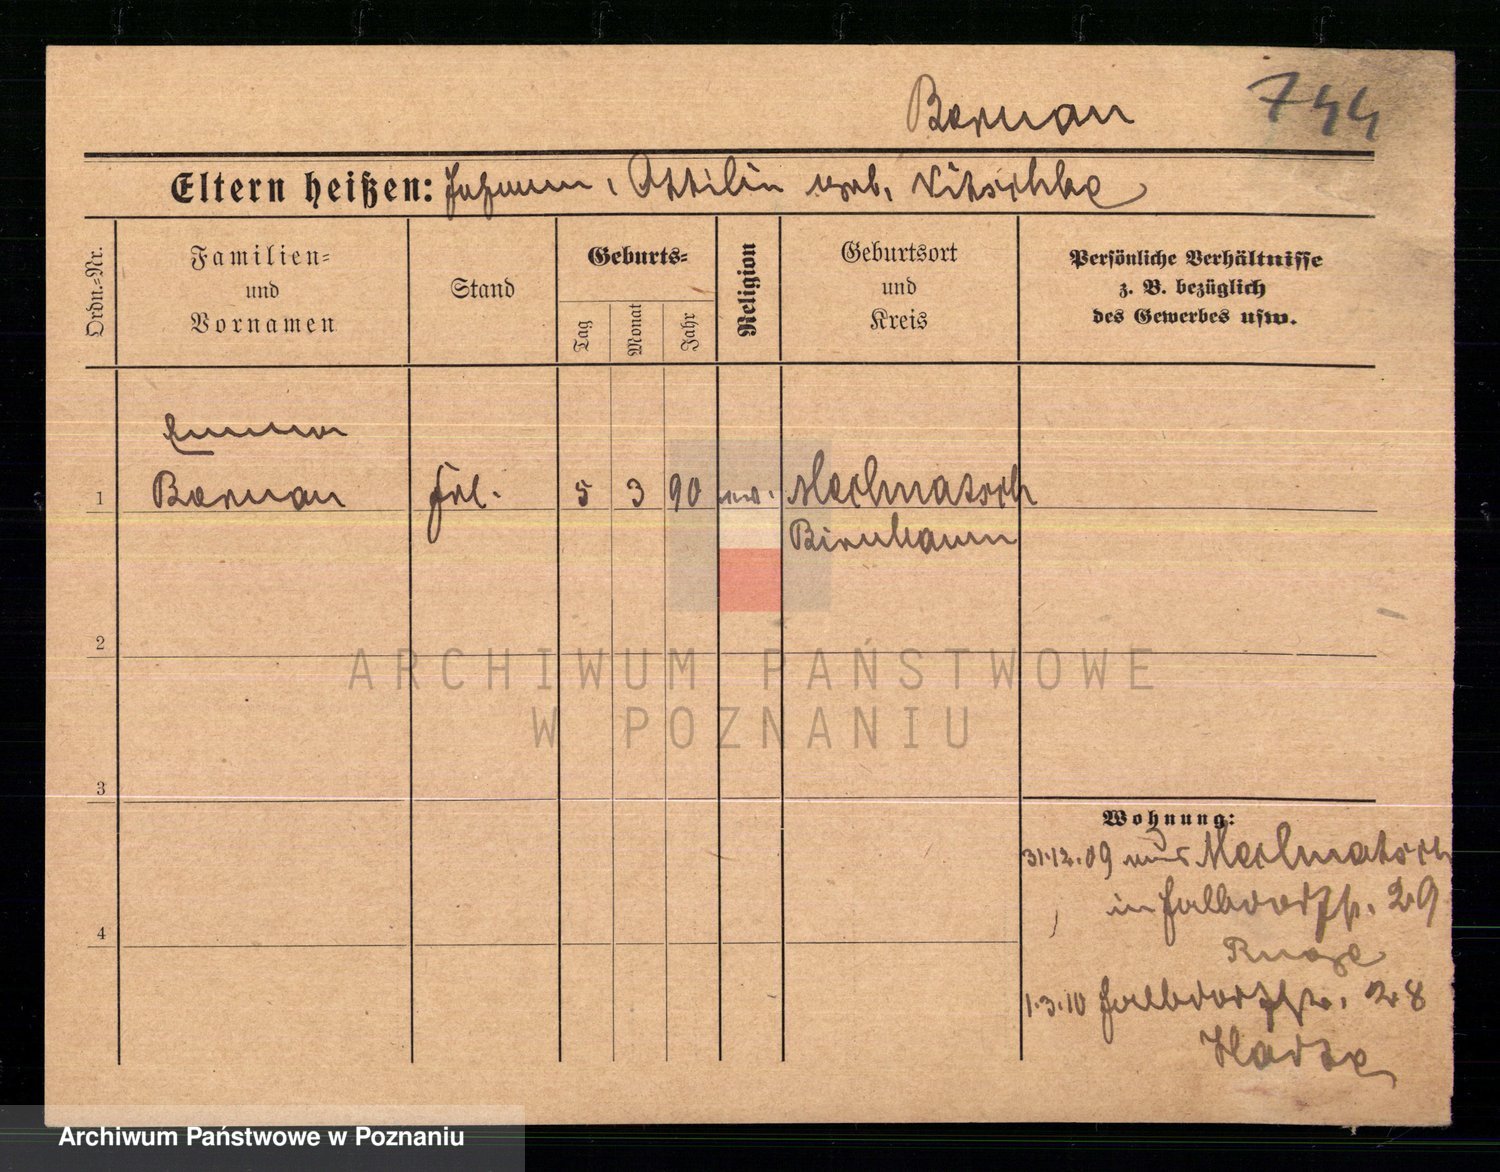 Bornan
744
Eltern heißen: Johann, Ottilie geb. Nitschke
Ordn.=Nr.
Familien=
und
Vornamen
Stand
Geburts=
Tag
Monat
Jahr
Religion
Geburtsort
und
Kreis
Persönliche Verhältnisse
z. B. bezüglich
des Gewerbes usw.
Emma
1 Bornan Frl. 5 3 90 ev.
Birnbaum
2
3
4
Wohnung:
31.12.09
in 29
1.3.10 28
ARCHIWUM PAŃSTWOWE
W POZNANIU
Archiwum Państwowe w Poznaniu